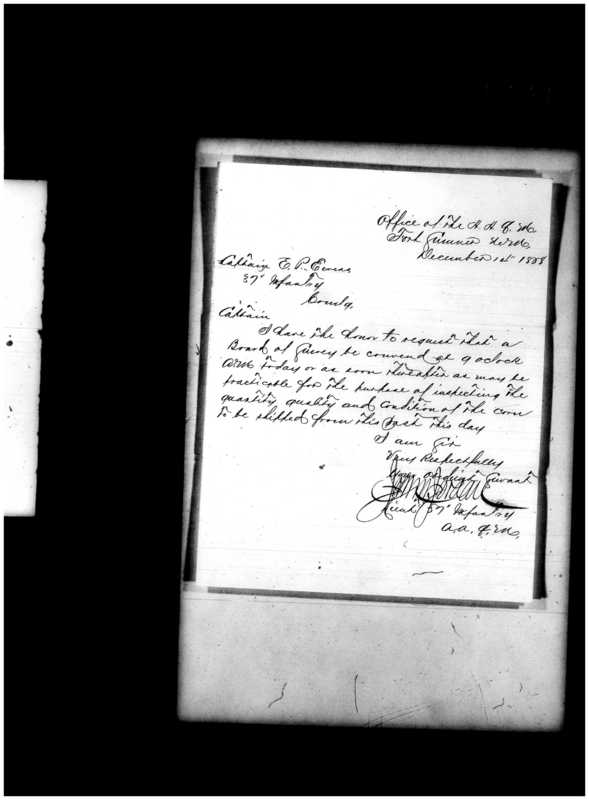 Office of the A. A. Q. M.
Fort Sumner N. M.
December 1st 1868
Captain E. P.
37" Infantry
Comdg.
Captain
I have the honor to request that a
Board of Survey be convend at 9 oclock
A.M. today or as soon thereafter as may be
practicable for the purpose of inspecting the
quantity, quality and condition of the corn
to be shipped from this Post this day
I am Sir
Very Respectfully
Your obedient Servant
Lieut 37" Infantry
A. A. Q. M.